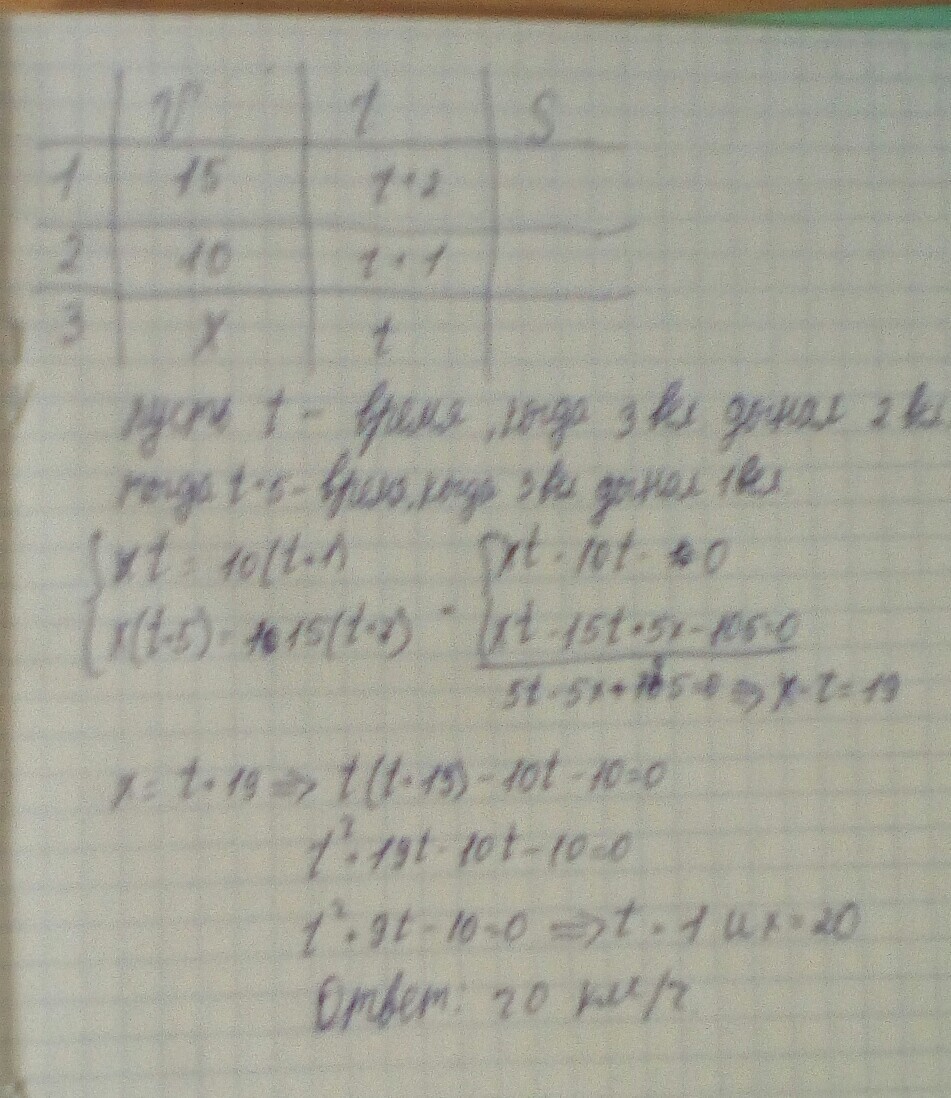 v t S
1 15 t+2
2 10 t+1
3 x t
пусть t - время, когда 3 вел догнал 2 вел
тогда t+5 - время, когда 3 вел догнал 1 вел
xt = 10(t+1) xt - 10t - 10
x(t+5) = 15(t+7) xt - 15t + 5x - 105=0
5t - 5x + 95=0 => x - t = 19
x = t+19 => t(t+19) - 10t - 10=0
t² + 19t - 10t - 10=0
t² + 9t - 10=0 => t = 1 и x = 20
Ответ: 20 км/ч